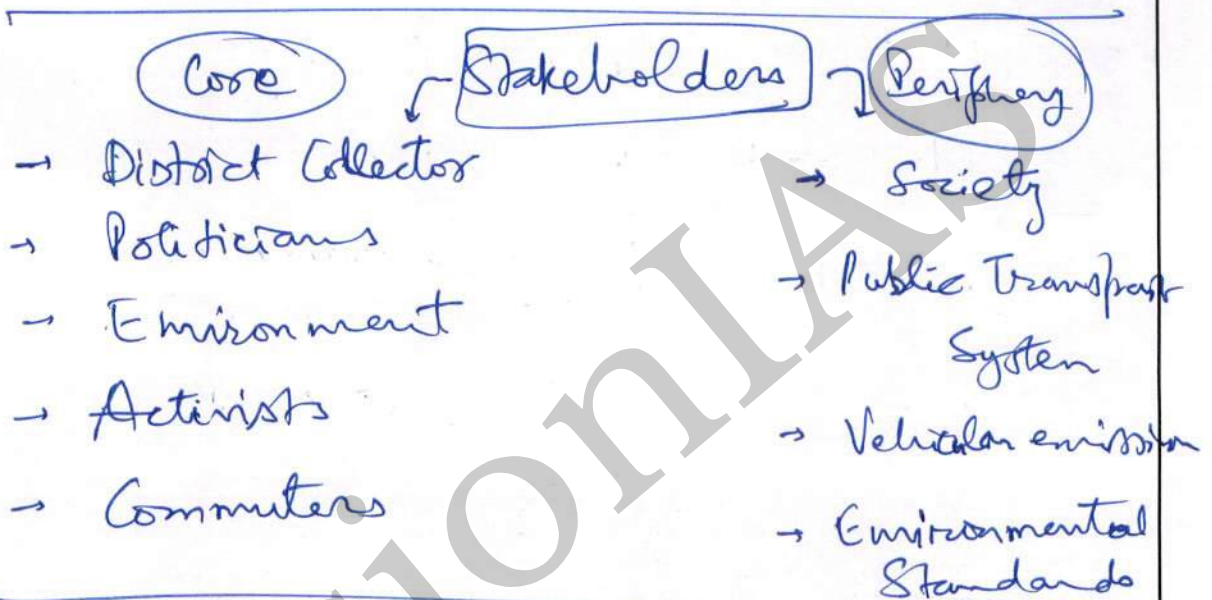 Core Stakeholders Periphery
→ District Collector
→ Politicians
→ Environment
→ Activists
→ Commuters
→ Society
→ Public Transport
System
→ Vehicular emission
→ Environmental
Standards